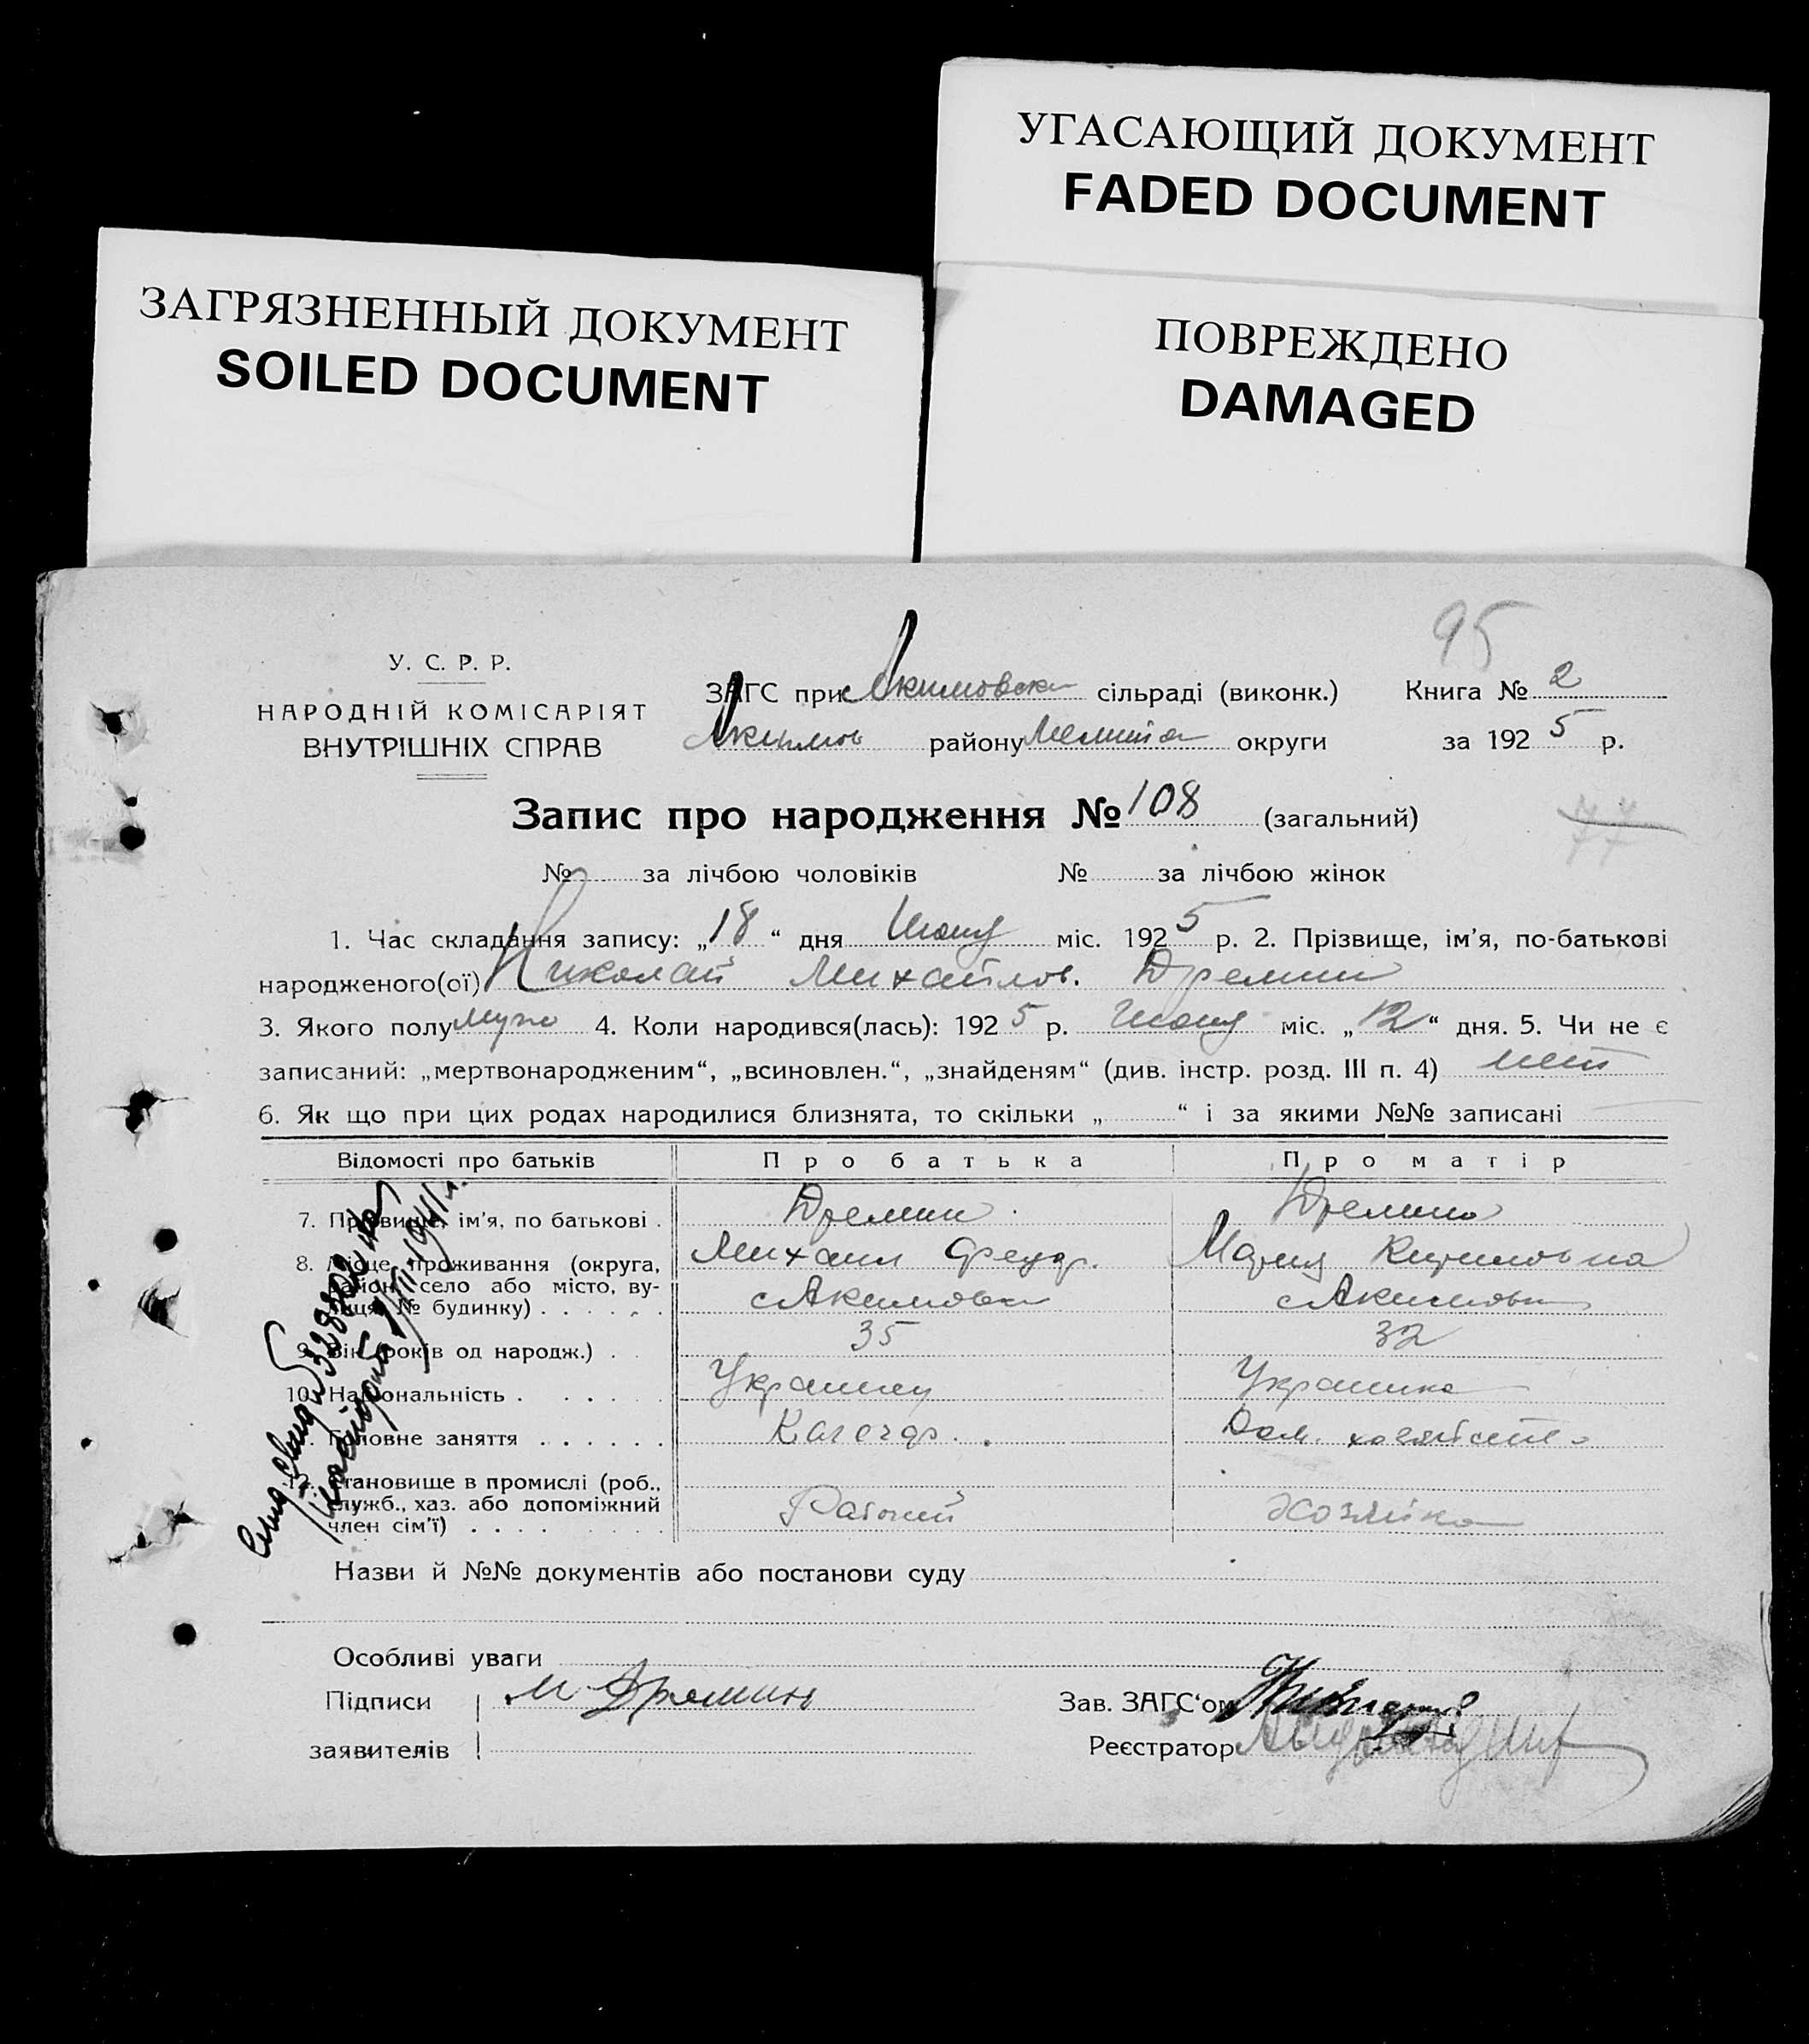 УГАСАЮЩИЙ ДОКУМЕНТ
FADED DOCUMENT
ЗАГРЯЗНЕННЫЙ ДОКУМЕНТ
SOILED DOCUMENT
ПОВРЕЖДЕНО
DAMAGED
95
У. С. Р. Р.
НАРОДНІЙ КОМІСАРІЯТ
ВНУТРІШНІХ СПРАВ
ЗАГС при Акимовск сільраді (виконк.) Книга № 2
Акимов району Мелито округи за 1925 р.
Запис про народження № 108 (загальний)
77
№ за лічбою чоловіків № за лічбою жінок
1. Час складання запису: „18“ дня Июня міс. 1925 р. 2. Прізвище, ім’я, по-батькові
народженого(ої) Николай Михайлов. Дремин
3. Якого полу Муж 4. Коли народився(лась): 1925 р. Июня міс. „12“ дня. 5. Чи не є
записаний: „мертвонародженим“, „всиновлен.“, „знайденям“ (див. інстр. розд. III п. 4) нет
6. Як що при цих родах народилися близнята, то скільки „ “ і за якими №№ записані
Відомості про батьків Про батька Про матір
7. Прізвище, ім’я, по батькові . Дремин Дремина
8. Місце проживання (округа, Михаил Федор. Мария Кириловна
район, село або місто, ву-
лиця, № будинку) . . . . . с Акимовка с Акимовка
9. Вік (років од народж.) . . 35 32
10. Національність . . . . . Украинец Украинка
11. Головне заняття . . . . . . Кочегар. Дом. хозяйство
12. Становище в промислі (роб.,
служб., хаз. або допоміжний
член сім’ї) . . . . Рабочий Хозяйка
Назви й №№ документів або постанови суду
Особливі уваги
Підписи М Дремин Зав. ЗАГС‘ом
заявителів Реєстратор